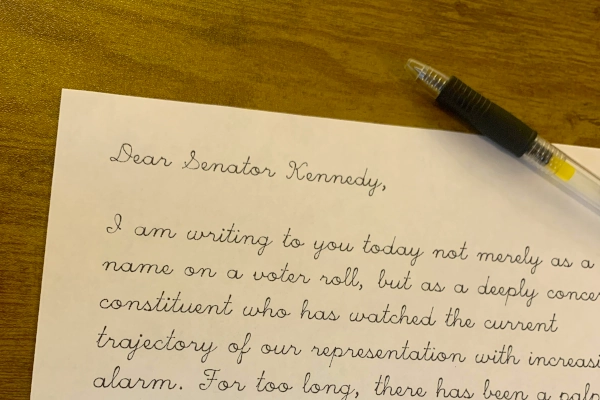 Dear Senator Kennedy,
I am writing to you today not merely as a
name on a voter roll, but as a deeply
constituent who has watched the current
trajectory of our representation with
alarm. For too long, there has been a